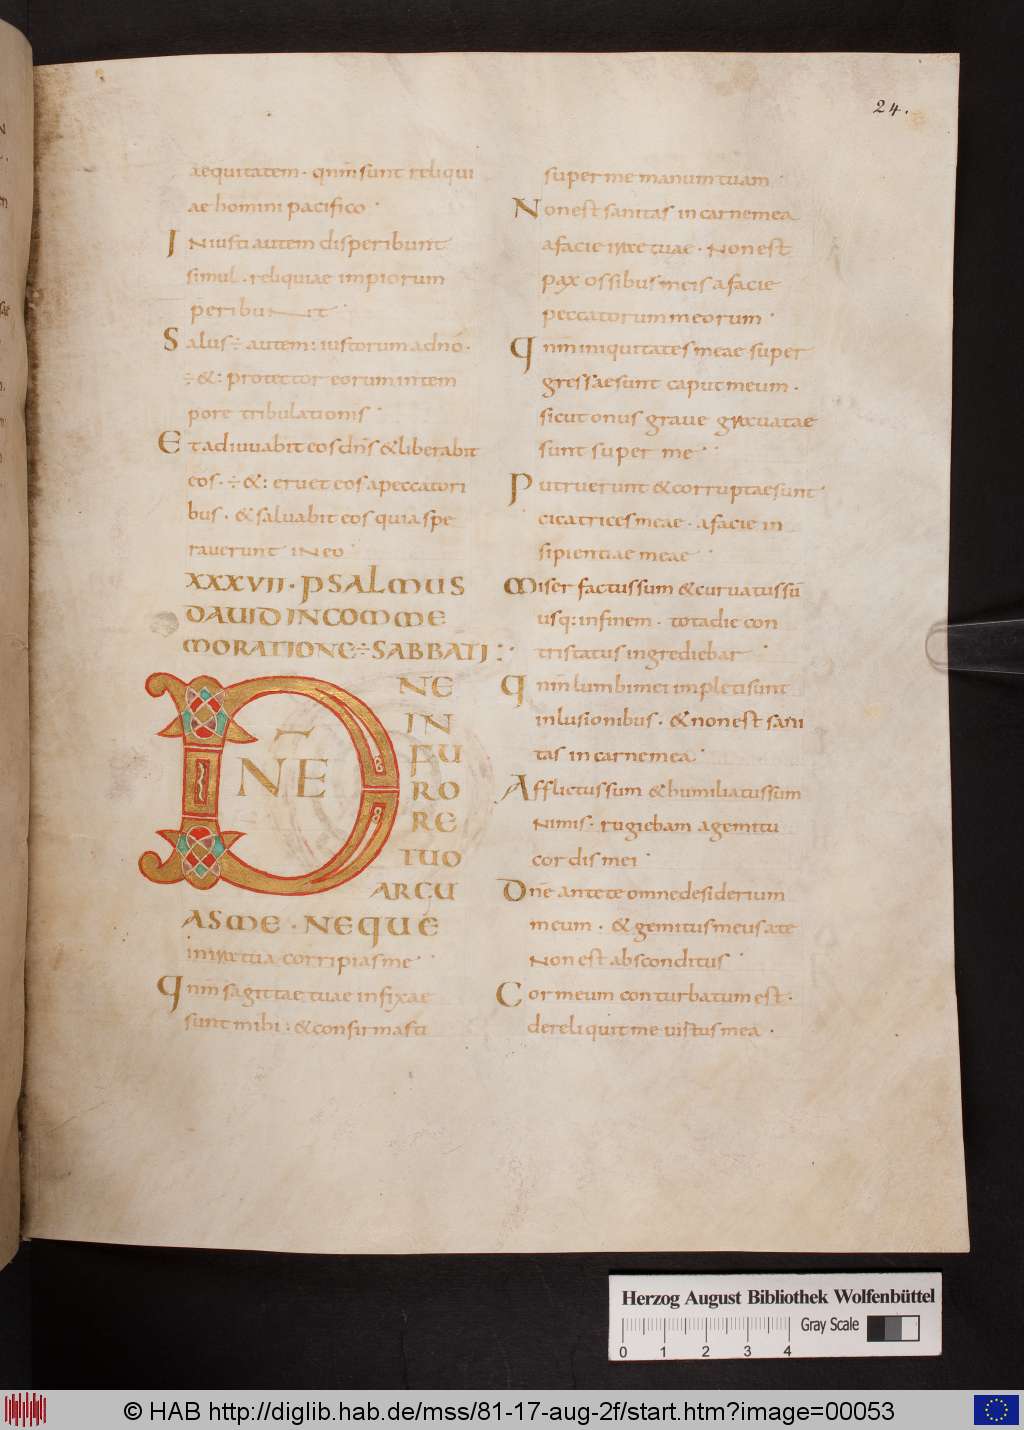 24.
aequitatem · qnm̄ sunt reliqui
ae homini pacifico ·
INiusti autem disperibunt
simul · reliquiae impiorum
peribuNt ·
Salus ÷ autem : iustorum a dnō ·
÷ & : protector eorum in tem
pore tribulationis ·
Et adiuvabit eos dn̄s & liberabit
eos · ÷ & : eruet eos a peccatori
bus · & salvabit eos quia spe
raverunt iN eo ·
XXXVII · PSALMUS
DAUID IN COMME
MORATIONE ÷ SABBATI :·
D̄NE NE
IN
FU
RO
RE
TUO
ARGU
AS ME · NEQUE
in ira tua corripias me ·
Qnm̄ sagittae tuae infixae
sunt mihi : & confirmasti
super me manum tuam ·
Non est sanitas in carne mea
a facie irae tuae · Non est
pax ossibus meis a facie
peccatorum meorum ·
Qnm̄ iniquitates meae super
gressae sunt caput meum ·
sicut onus grave gravatae
sunt super me ·
Putruerunt & corruptae sunt
cicatrices meae · a facie in
sipientiae meae ·
Miser factus sum & curvatus sū
usq: in finem · tota die con
tristatus ingrediebar ·
Qnm̄ lumbi mei impleti sunt
inlusionibus · & non est sani
tas in carne mea ·
Afflictus sum & humiliatus sum
Nimis · rugiebam a gemitu
cordis mei ·
Dnē ante te omne desiderium
meum · & gemitus meus a te
Non est absconditus ·
Cor meum conturbatum est ·
dereliquit me virtus mea ·
Herzog August Bibliothek Wolfenbüttel
Gray Scale
0 1 2 3 4
© HAB http://diglib.hab.de/mss/81-17-aug-2f/start.htm?image=00053